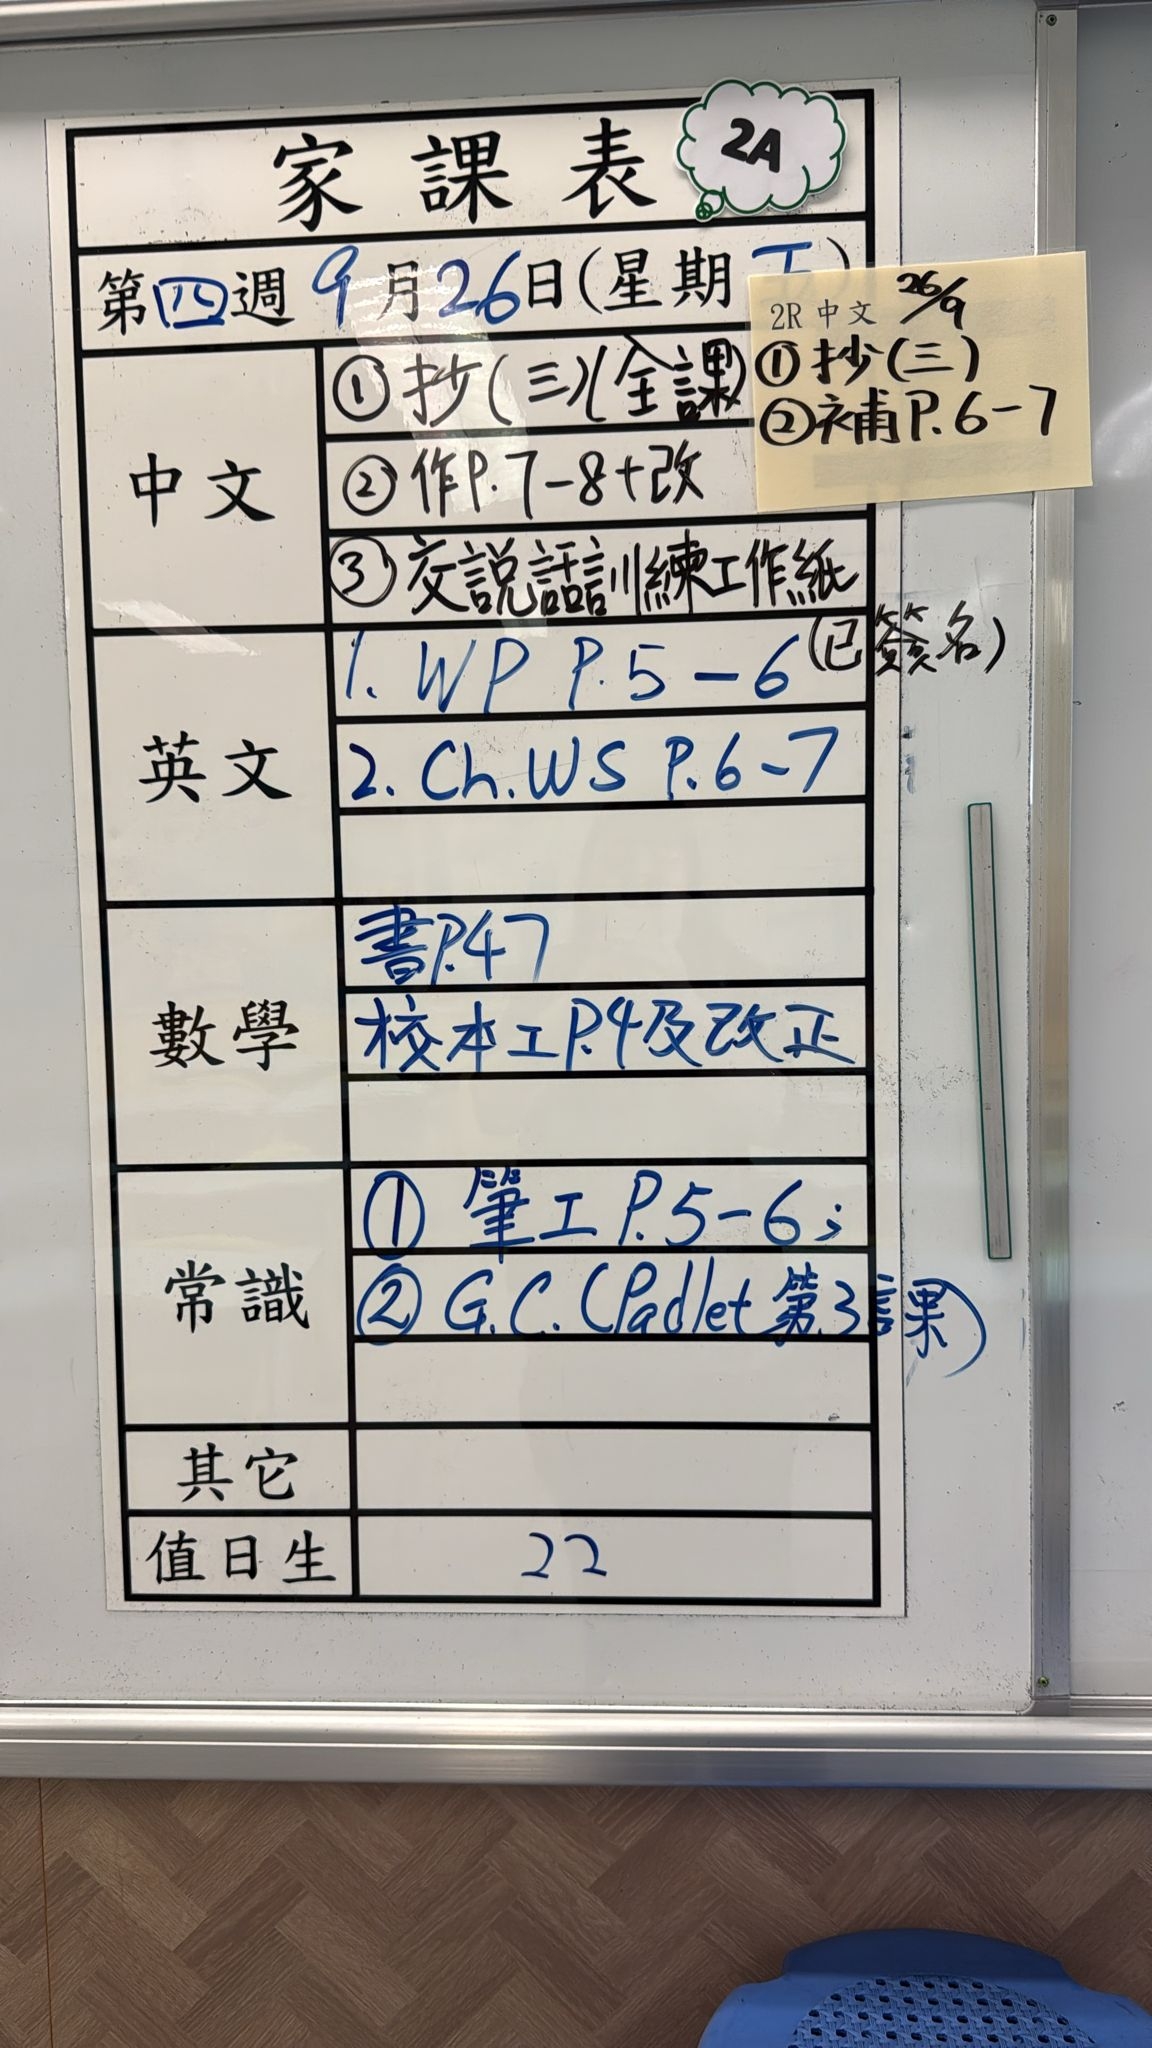 家課表
2A
第四週 9月26日(星期五)
2R 中文 26/9
①抄(三)
②補P.6-7
中文
①抄(三)(全課)
②作P.7-8+改
③交說話訓練工作紙
(已簽名)
英文
1. WP P.5-6
2. Ch.WS P.6-7
數學
書P.47
校本工P.4及改正
常識
① 筆工 P.5-6;
② G.C.(Padlet 第3課)
其它
值日生 22